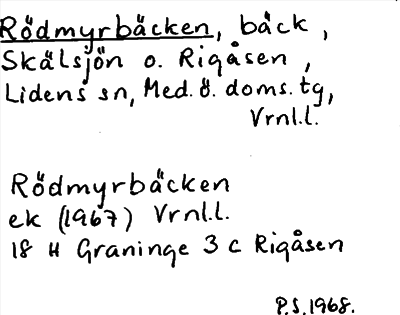 Rödmyrbäcken, bäck,
Skälsjön o. Rigåsen,
Lidens sn, Med. ö. doms. tg,
Vrnl.l.
Rödmyrbäcken
ek (1967) Vrnl.l.
18 H Graninge 3 c Rigåsen
P.S. 1968.